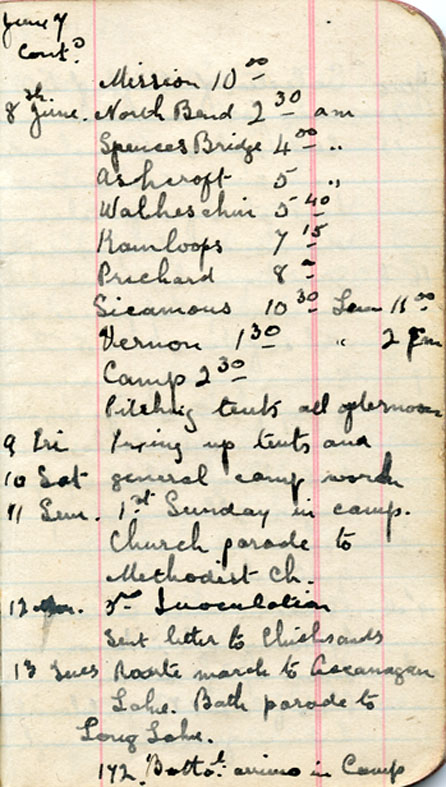 June 7
Cont.ᵈ
Mission 10 ⁰⁰
8ᵗʰ June. North Bend 2 ³⁰ am
Spences Bridge 4 ⁰⁰ "
Ashcroft 5 "
Walheschin 5 ⁴⁰
Kamloops 7 ¹⁵
Prichard 8
Sicamous 10 ³⁰ Leav 11 ⁰⁰
Vernon 1 ³⁰ " 2 pm
Camp 2 ³⁰
Pitching tents all afternoon
9 Fri Fixing up tents and
10 Sat general camp work
11 Sun. 1ˢᵗ Sunday in camp.
Church parade to
Methodist Ch.
12 Inoculation
Sent letter to Chicksands
13 Tues Route march to Ocanagan
Lake. Bath parade to
Long Lake.
172. Batto. arrives in Camp